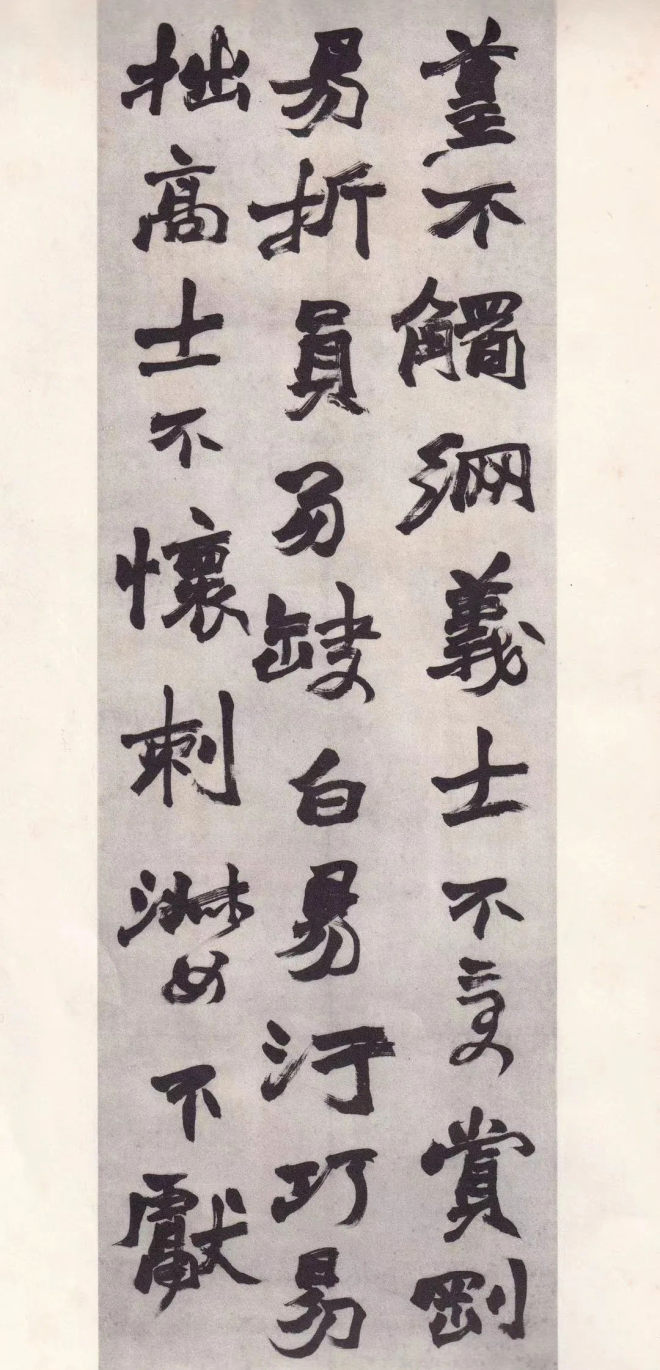 不觸網義士不受賞剛
易折員易缺白易汙巧易
拙高士不懷刺淑女不獻